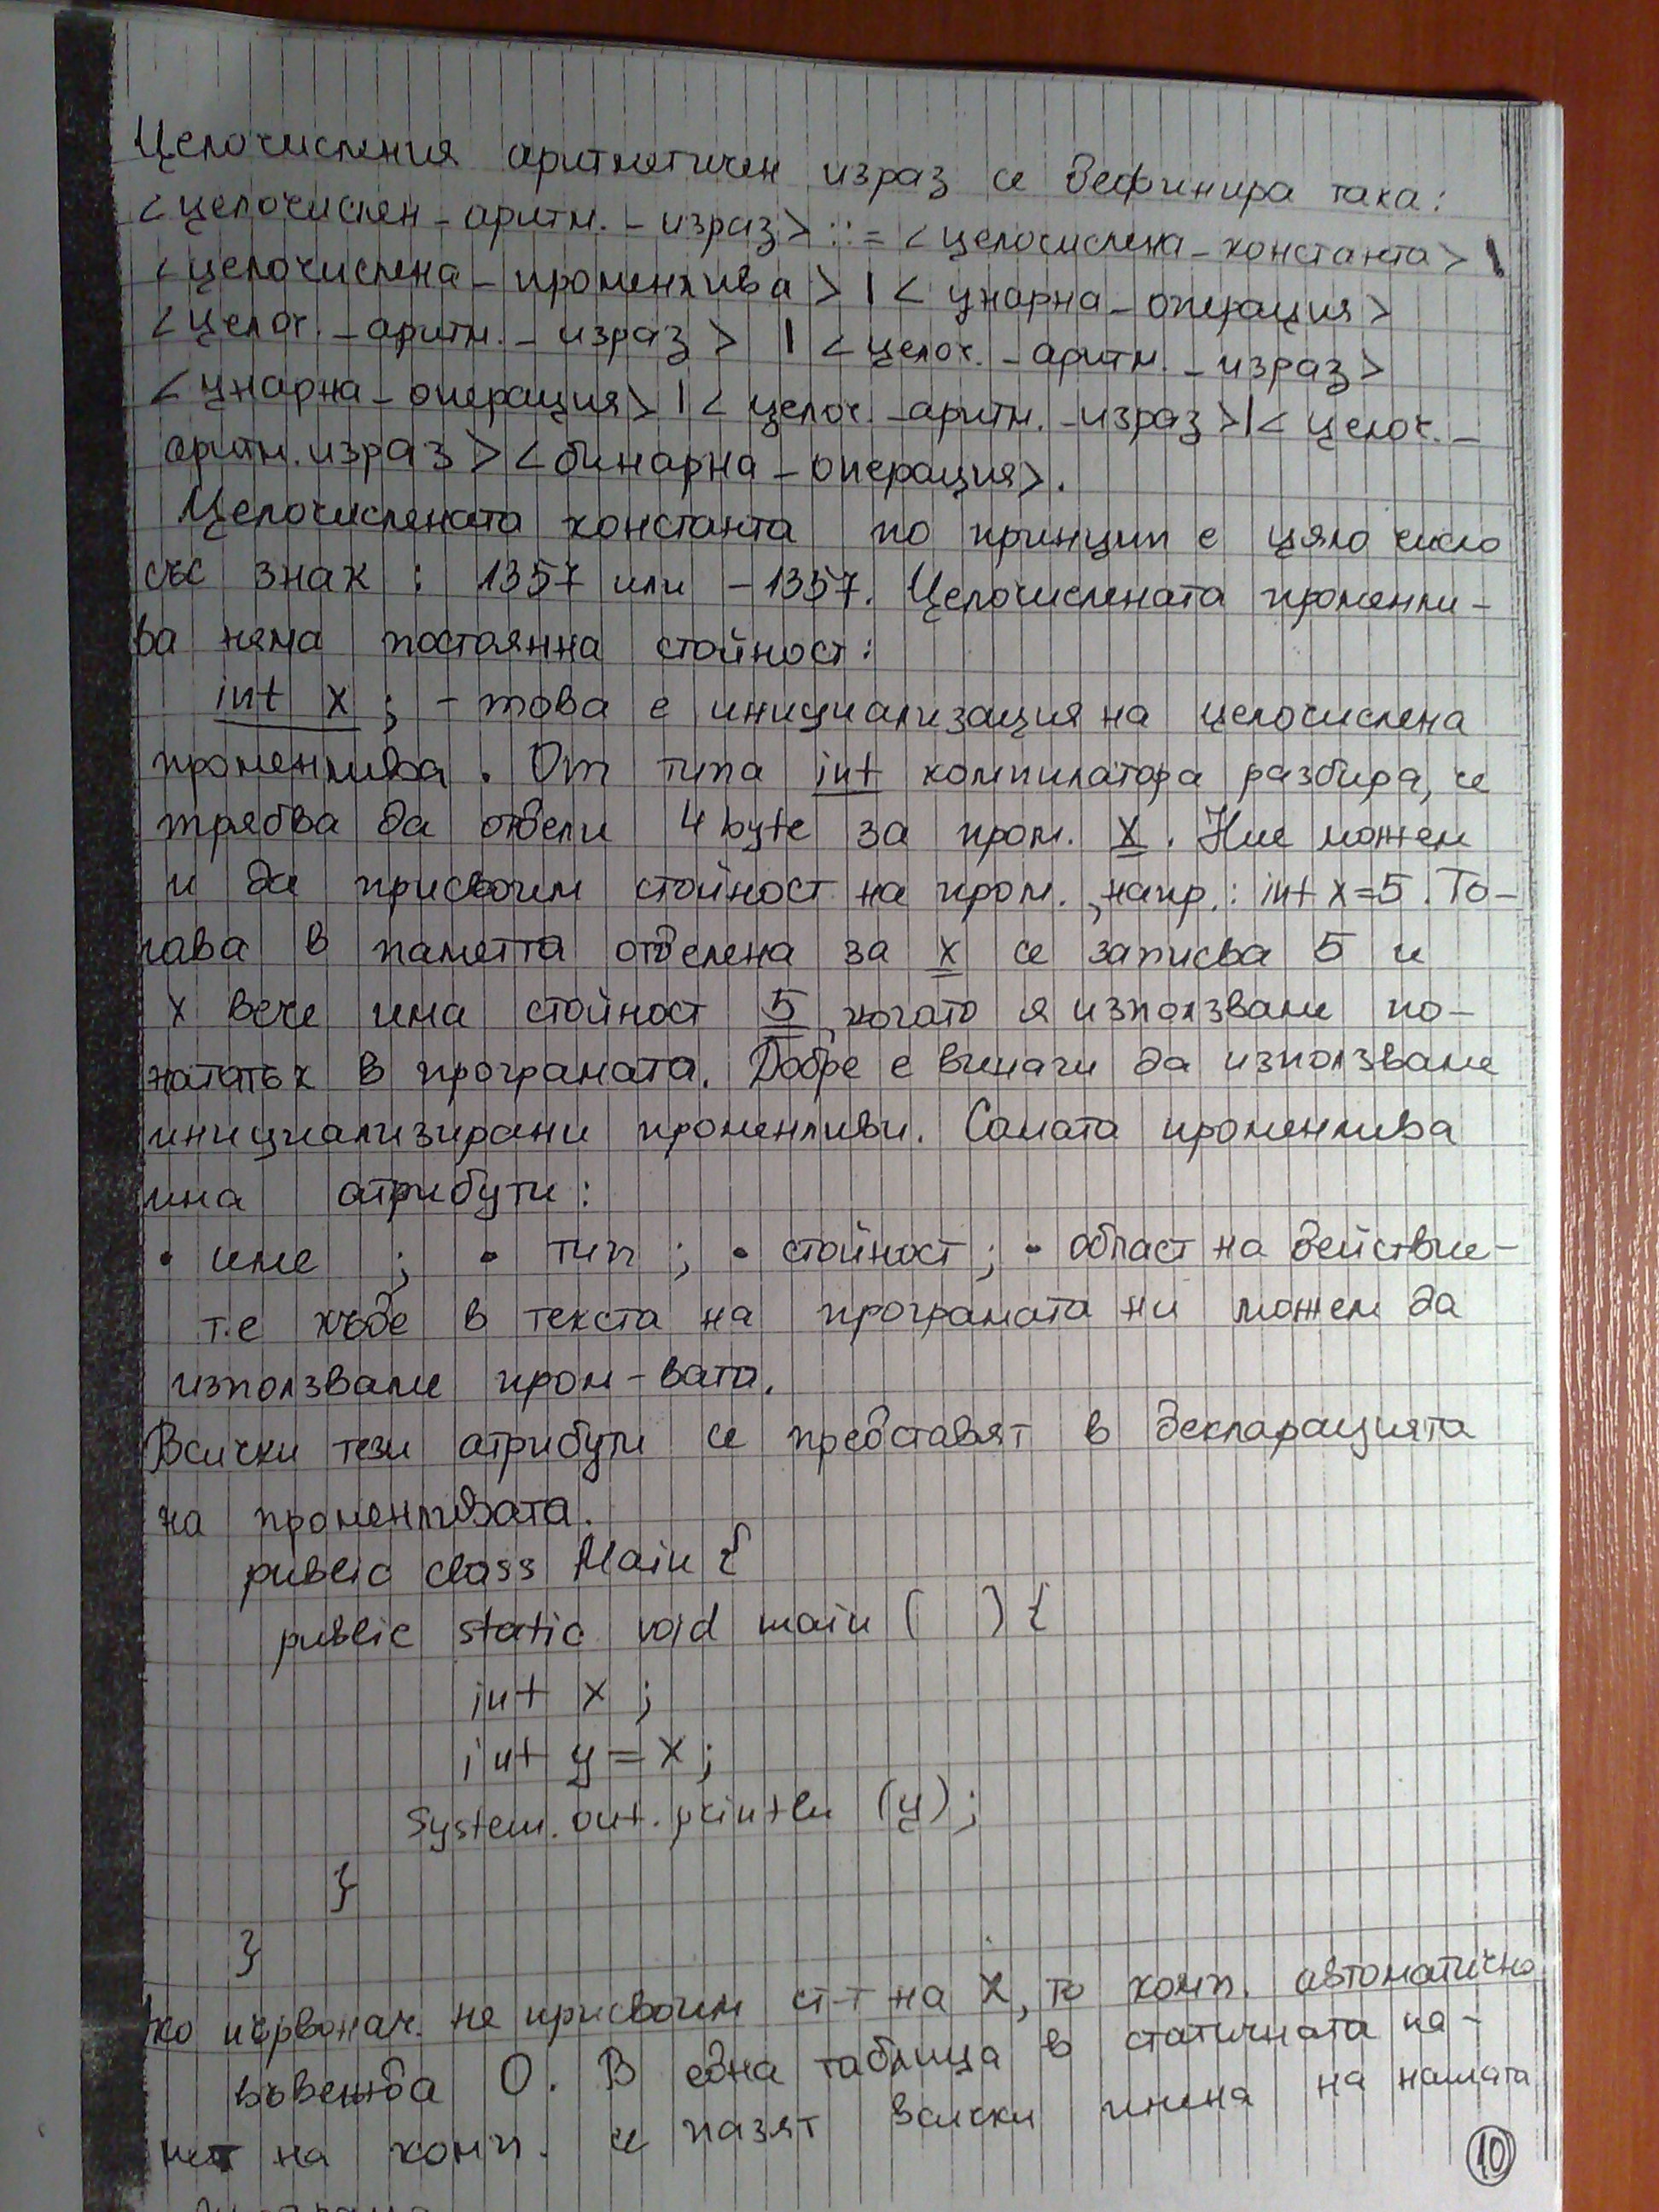 Целочисления аритметичен израз се дефинира така:
<целочислен_аритм._израз> ::= <целочислена_константа> |
<целочислена_променлива> | < унарна_операция>
<целоч._аритм._израз> | <целоч._аритм._израз>
<унарна_операция> | < целоч._аритм._израз>|< целоч._
аритм.израз> <бинарна_операция>.
Целочислената константа по принцип е цяло число
със знак : 1357 или -1357. Целочислената променли-
ва няма постоянна стойност:
int x ; - това е инициализация на целочислена
променлива . От типа int компилатора разбира, че
трябва да отдели 4 byte за пром. x . Ние можем
и да присвоим стойност на пром. , напр.: int x=5 . То-
гава в паметта отделена за x се записва 5 и
x вече има стойност 5 , когато я използваме по-
нататък в програмата. Добре е винаги да използваме
инициализирани променливи. Самата променлива
има атрибути:
• име ; • тип ; • стойност ; • област на действие-
т.е къде в текста на програмата ни можем да
използваме пром-вата.
Всички тези атрибути се представят в декларацията
на променливата.
public class Main {
public static void main ( ) {
int x ;
int y = x ;
System.out.println (y) ;
}
}
ко първонач. не присвоим ст-т на x, то комп. автоматично
въвежда 0. В една таблица в статичната па-
мет на комп. се пазят всички имена на нашата
10